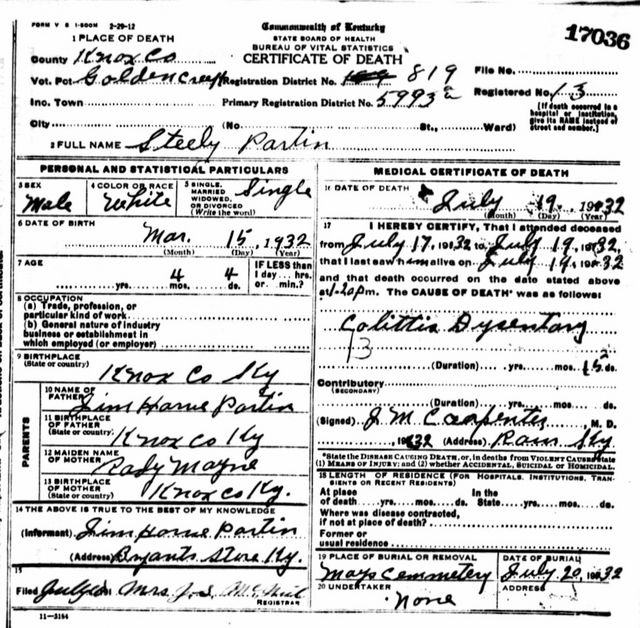 FORM V S 1-500M 2-29-12
Commonwealth of Kentucky
STATE BOARD OF HEALTH
BUREAU OF VITAL STATISTICS
CERTIFICATE OF DEATH
17036
1 PLACE OF DEATH
County Knox Co
Vot. Pct Goldencreek Registration District No. 819
File No.
Inc. Town Primary Registration District No. 5993a
Registered No. 13
[If death occurred in a hospital or institution, give its NAME instead of street and number.]
City (No St., Ward)
2 FULL NAME Steely Partin
PERSONAL AND STATISTICAL PARTICULARS
3 SEX Male
4 COLOR OR RACE White
5 SINGLE, MARRIED WIDOWED, OR DIVORCED (Write the word) Single
6 DATE OF BIRTH
Mar. 15, 1932
(Month) (Day) (Year)
7 AGE
yrs. 4 mos. 4 ds.
IF LESS than 1 day... hrs. or min.?
8 OCCUPATION
(a) Trade, profession, or particular kind of work
(b) General nature of industry business or establishment in which employed (or employer)
9 BIRTHPLACE
(State or country) Knox Co Ky
PARENTS
10 NAME OF FATHER Jim Partin
11 BIRTHPLACE OF FATHER
(State or country) Knox Co Ky
12 MAIDEN NAME OF MOTHER
13 BIRTHPLACE OF MOTHER
(State or country) Knox Co Ky.
14 THE ABOVE IS TRUE TO THE BEST OF MY KNOWLEDGE
(Informant) Jim Partin
(Address) Bryants Store Ky.
15
Filed Mrs.
REGISTRAR
11-3184
MEDICAL CERTIFICATE OF DEATH
16 DATE OF DEATH
July 19, 1932
(Month) (Day) (Year)
17 I HEREBY CERTIFY, That I attended deceased
from July 17, 1932 to July 19, 1932,
that I last saw him alive on July 19, 1932
and that death occurred on the date stated above
at 1-20 pm. The CAUSE OF DEATH* was as follows:
Colittis Dysentary
13
(Duration) yrs. mos. ds.
Contributory
(SECONDARY)
(Duration) yrs. mos. ds.
(Signed) J M Carpenter, M. D.
, 1932 (Address) Rain Ky.
*State the DISEASE CAUSING DEATH, or, in deaths from VIOLENT CAUSES state (1) MEANS OF INJURY; and (2) whether ACCIDENTAL, SUICIDAL or HOMICIDAL.
18 LENGTH OF RESIDENCE (FOR HOSPITALS, INSTITUTIONS, TRANSIENTS OR RECENT RESIDENTS)
At place of death yrs. mos. ds. In the State yrs. mos. ds.
Where was disease contracted, if not at place of death?
Former or usual residence
19 PLACE OF BURIAL OR REMOVAL
Mays Cemmetery
DATE OF BURIAL
July 20, 1932
20 UNDERTAKER
None
ADDRESS